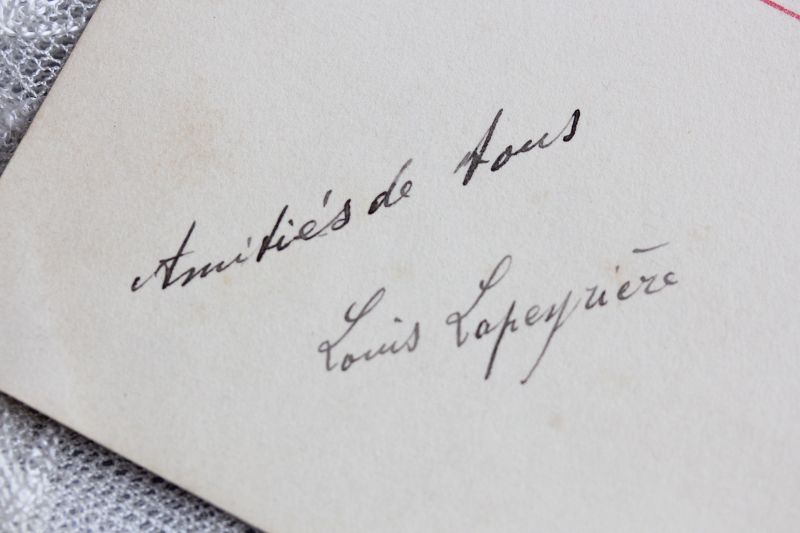 Amitiés de tous
Louis Lapeyrière